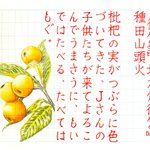 種田山頭火
枇杷の実がつぶらに色
づいてきた、Jさんの
子供たちが来てよろこ
んでうまさうに、もい
ではたべる、たべては
もぐ